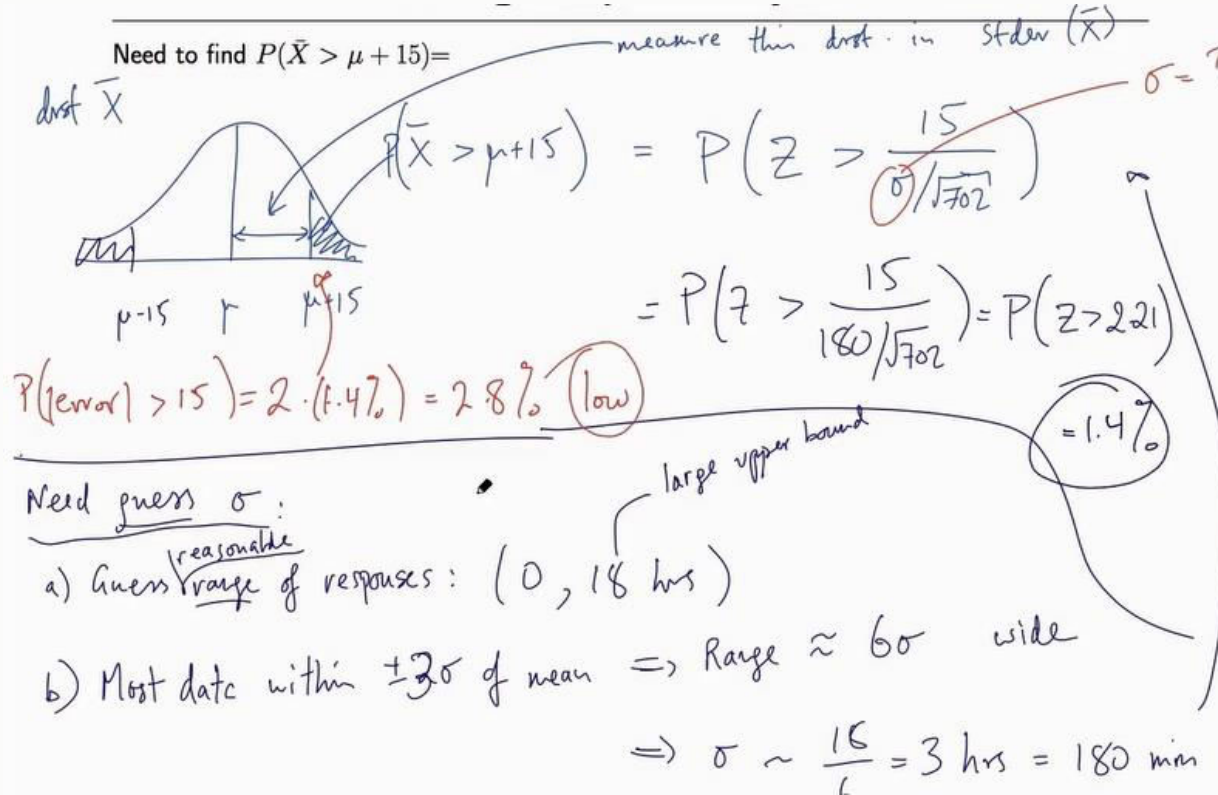 Need to find P(X̄ > μ + 15)=
measure this dist. in Stdev (X̄)
σ = ?
dist X̄
P(X̄ > μ+15) = P(Z > 15 / (σ/√702))
= P(Z > 15 / (180/√702)) = P(Z > 2.21)
= 1.4%
μ-15 μ μ+15
P(|error| > 15) = 2·(1.4%) = 2.8% low
large upper bound
Need guess σ:
reasonable
a) Guess range of responses: (0, 18 hrs)
b) Most data within ±3σ of mean => Range ≈ 6σ wide
=> σ ~ 18/6 = 3 hrs = 180 min